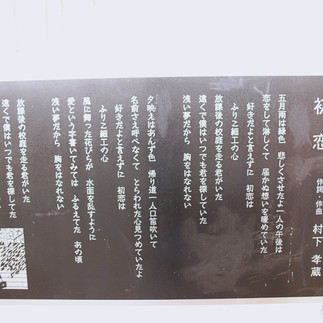 初恋
作詞・作曲 村下孝蔵
五月雨は緑色 悲しくさせたよ一人の午後は
恋をして淋しくて 届かぬ想いを暖めていた
好きだよと言えずに 初恋は
ふりこ細工の心
放課後の校庭を走る君がいた
遠くで僕はいつでも君を探してた
浅い夢だから 胸をはなれない
夕映えはあんず色 帰り道一人口笛吹いて
名前さえ呼べなくて とらわれた心見つめていたよ
好きだよと言えずに 初恋は
ふりこ細工の心
風に舞った花びらが 水面を乱すように
愛という字書いてみては ふるえてた あの頃
浅い夢だから 胸をはなれない
放課後の校庭を走る君がいた
遠くで僕はいつでも君を探してた